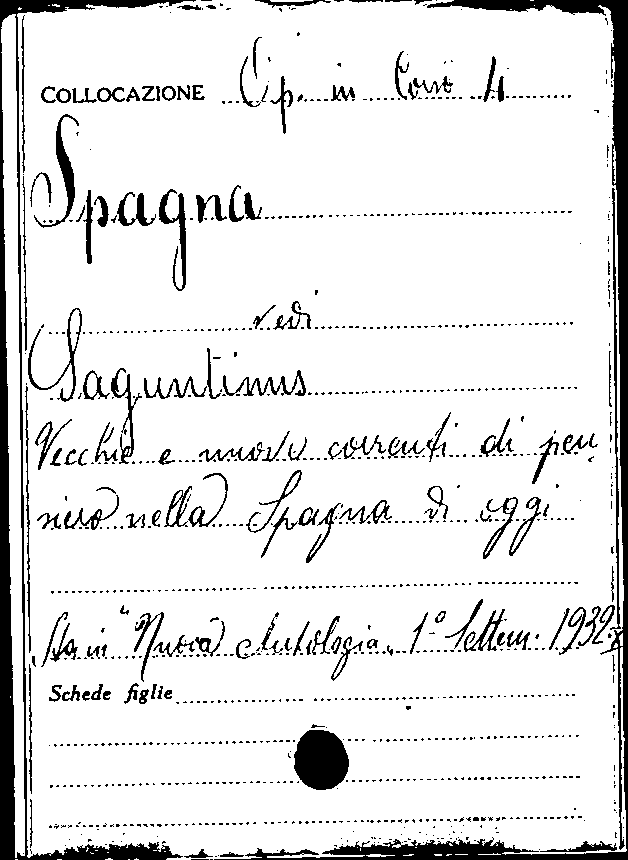 COLLOCAZIONE Op. in Corso 4
Spagna
vedi
Saguntinus
Vecchie e nuove correnti di pen-
siero nella Spagna di oggi
Sta in "Nuova Antologia" 1º Settem. 1932-X
Schede figlie